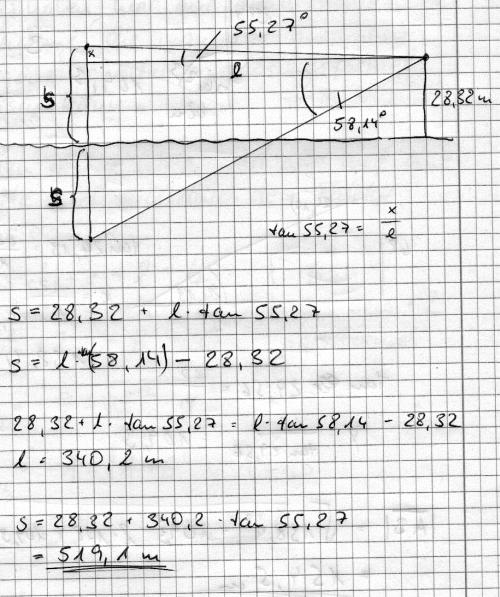 55,27°
x
l
s
28,32 m
58,14°
s
tan 55,27 = x/l
s = 28,32 + l · tan 55,27
s = l · tan(58,14) - 28,32
28,32 + l · tan 55,27 = l · tan 58,14 - 28,32
l = 340,2 m
s = 28,32 + 340,2 · tan 55,27
= 519,1 m